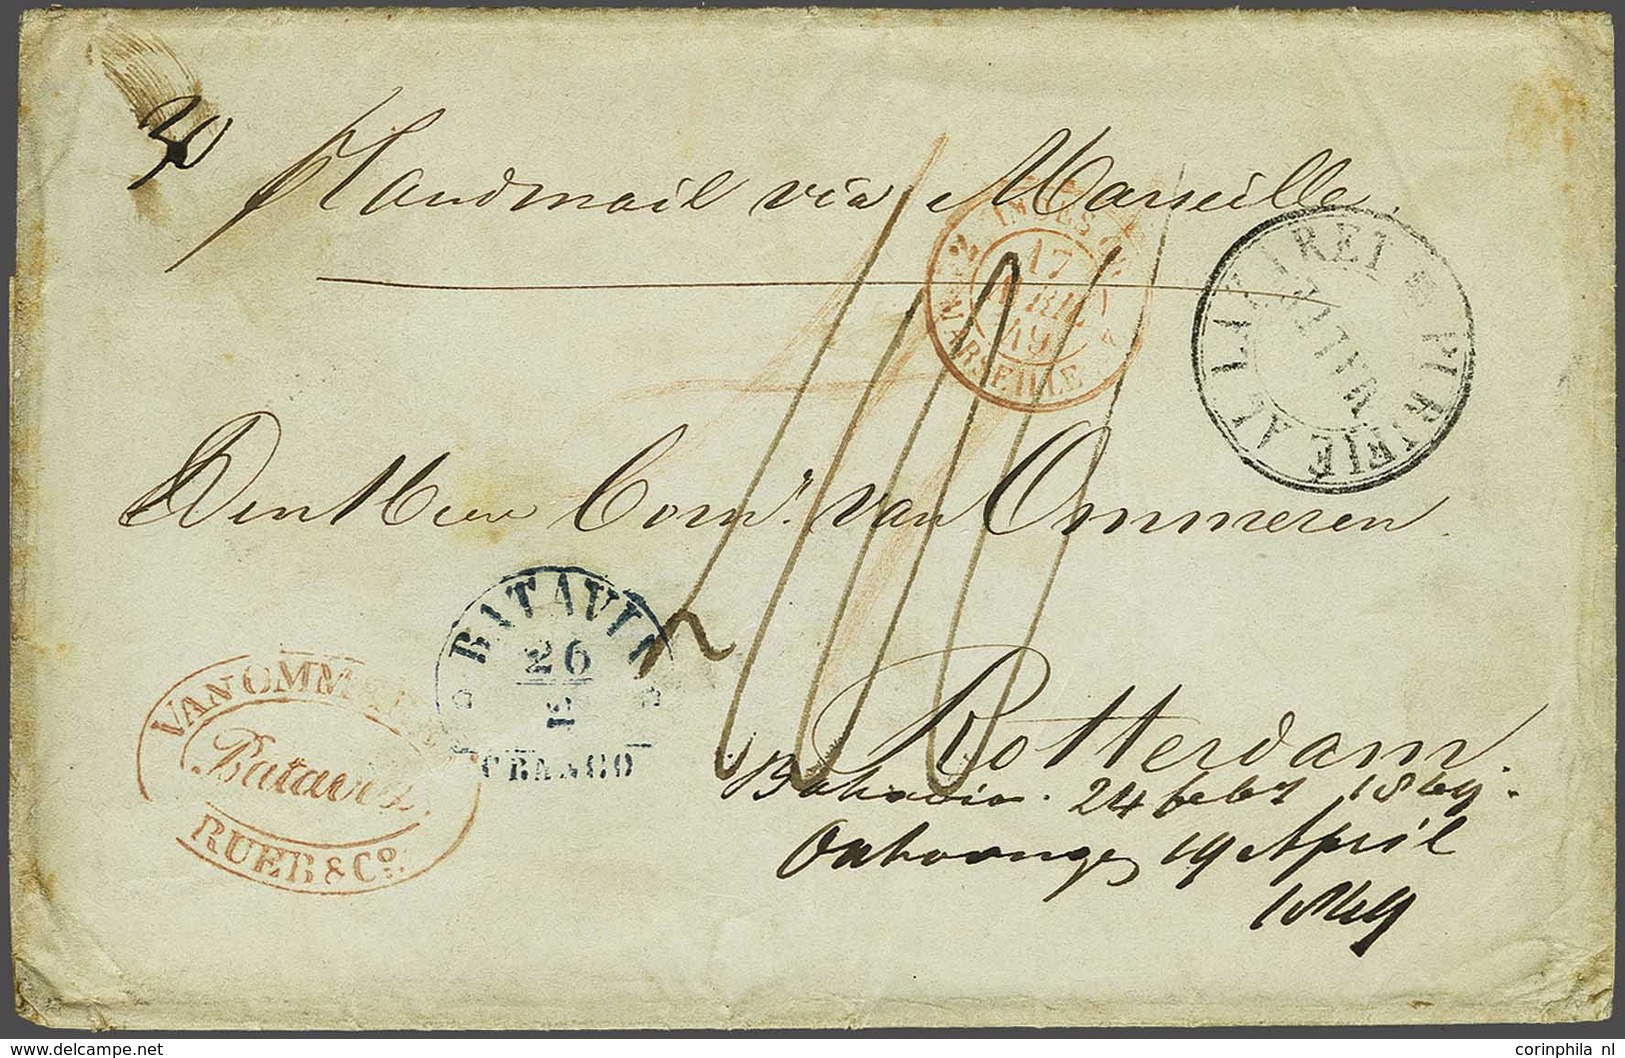 Landmail via Marseille.
INDES
17
AVRIL
49
MARSEILLE
PURIFIE AU LAZARET
MALTE
Den Heer Corns. van Ommeren
BATAVIA
26
2
FRANCO
VAN OMMEREN
Batavia.
RUEB & Co.
Rotterdam.
Batavia. 24 febr 1849.
Ontvangen 19 April
1849
corinphila nl